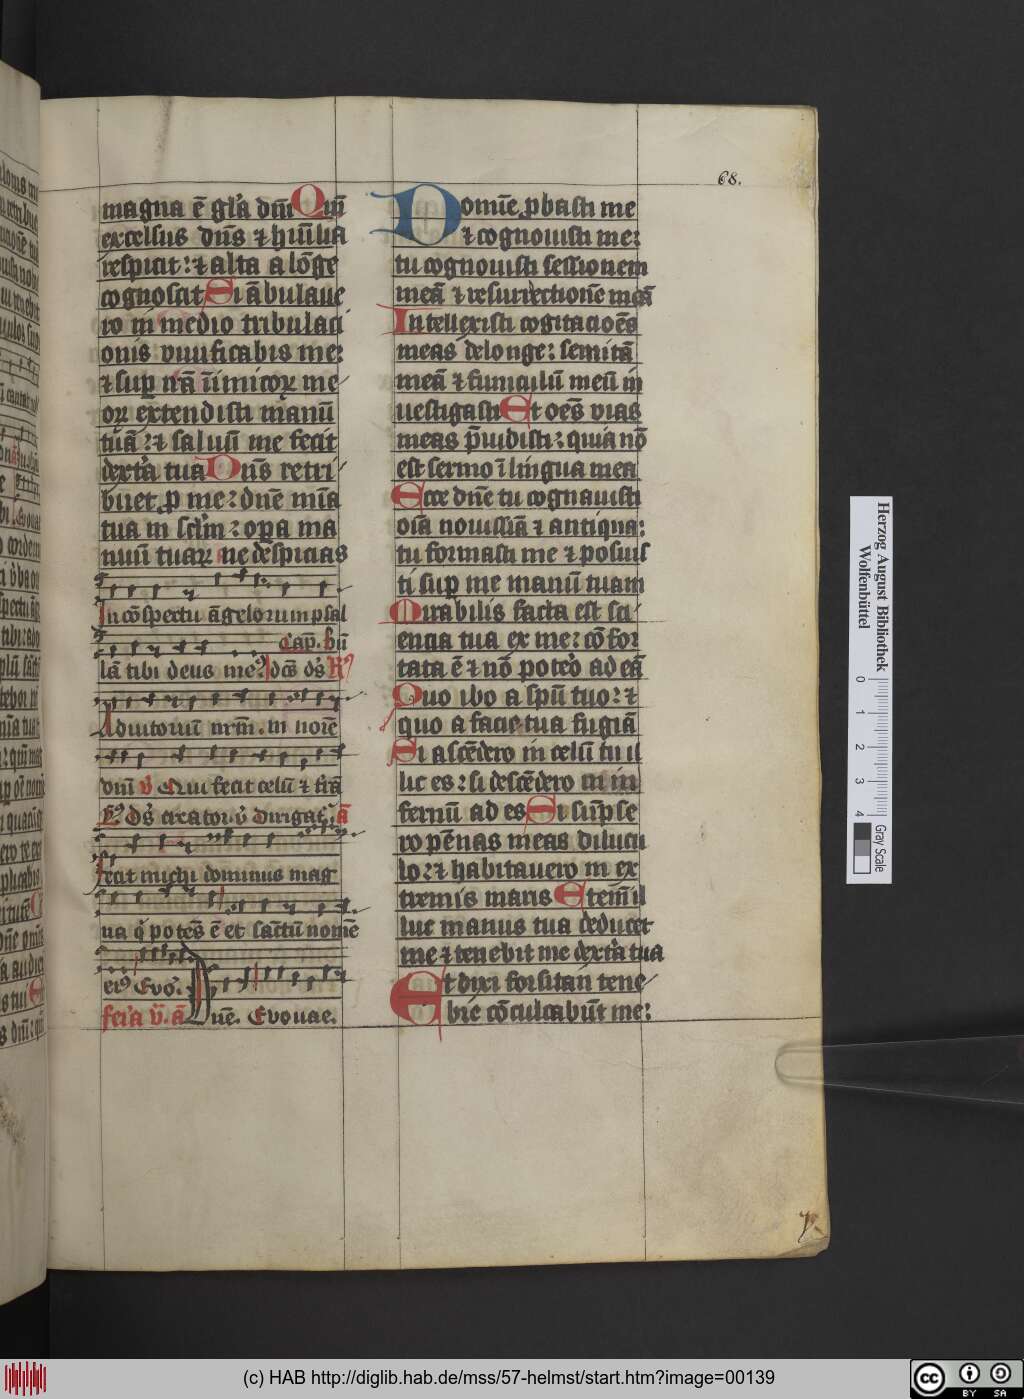 68.
magna ē gl'a dn̄i Qm̄
excelsus dn̄s ⁊ hūilia
respicit: ⁊ alta a lōge
cognoscit Si ābulaue
ro in medio tribulaci
onis viuificabis me:
⁊ sup irā īimicoꝝ me
oꝝ extendisti manū
tuā: ⁊ saluū me fecit
dext'a tua Dn̄s retri
buet ꝓ me: dn̄e mīa
tua in sclm̄: opa ma
nuū tuaꝝ ne despicias
In cōspectu āgelorum psal
Cap̄. bn̄
lā tibi deus meꝰ
Adiutoriū nrm̄. in noīe
dn̄i v̄ Qui fecit celū ⁊ t'rā
creator v̄ Dirigat' ā
Fecit michi dominus mag
na q' potēs ē et sāctū nomē
eiꝰ Evoꝰ.
feria v. ā Dn̄e. Evouae.
Domīe ꝓbasti me
⁊ cognouisti me:
tu cognouisti sessionem
meā ⁊ resurrectionē meā
Intellexisti cogitacioēs
meas delonge: semitā
meā ⁊ funiculū meū in
uestigasti Et oēs vias
meas p̄uidisti: quia nō
est sermo ī lingua mea
Ecce dn̄e tu cognauisti
oīa nouissīa ⁊ antiqua:
tu formasti me ⁊ posuis
ti sup me manū tuam
Mirabilis facta est sci
encia tua ex me: cō for
tata ē ⁊ nō potero ad eā
Quo ibo a spū tuo: ⁊
quo a facie tua fugiā
Si ascēdero in celū tu il
lic es: si descēdero in in
fernū ad es Si sūpse
ro pēnas meas dilucu
lo: ⁊ habitauero in ex
tremis maris Etem̄ il
luc manus tua deducet
me ⁊ tenebit me dext'a tua
Et dixi forsitan tene
bre cōculcabūt me:
Herzog August Bibliothek
Wolfenbüttel
0 1 2 3 4
Gray Scale
(c) HAB http://diglib.hab.de/mss/57-helmst/start.htm?image=00139
cc BY SA